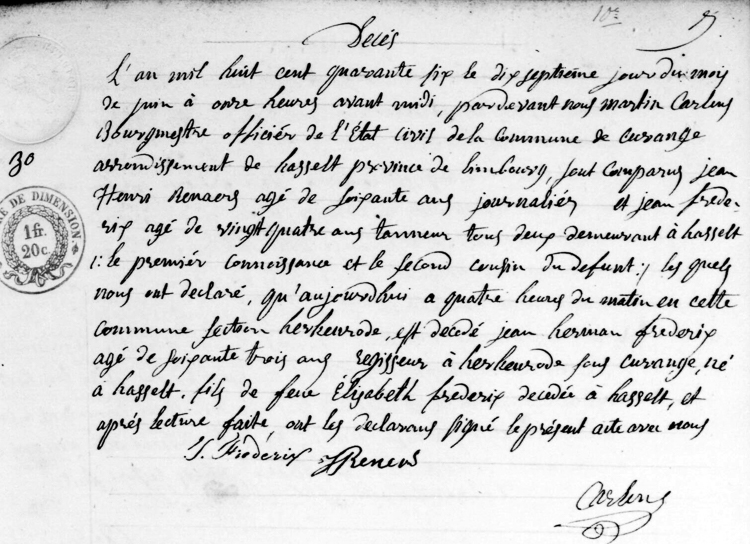 10re
Décés
L'an mil huit cent quarante six le dix septieme jour du mois
de juin à onze heures avant midi, pardevant nous martin Carlens
Bourgmestre officiér de l'État Civil de la Commune de curange
30
arrondissement de hasselt province de limbourg, sont comparus jean
Henri Renaers agé de soixante ans journaliér et jean frede-
rix agé de vingt quatre ans tanneur tous deux demeurant à hasselt
DE DIMENSION
1 fr.
20 c.
/: le premiér connoissance et le second cousin du defunt :/ les quels
nous ont declaré, qu'aujourdhui a quatre heures du matin en cette
commune section herkenrode, est decedé jean herman frederix
agé de soixante trois ans regisseur à herkenrode sous curange, né
à hasselt, fils de feue Élisabeth frederix decedée à hasselt, et
aprés lecture faite, ont les declarans signé le présent acte avec nous
J. Frederix JHReners
Carlens